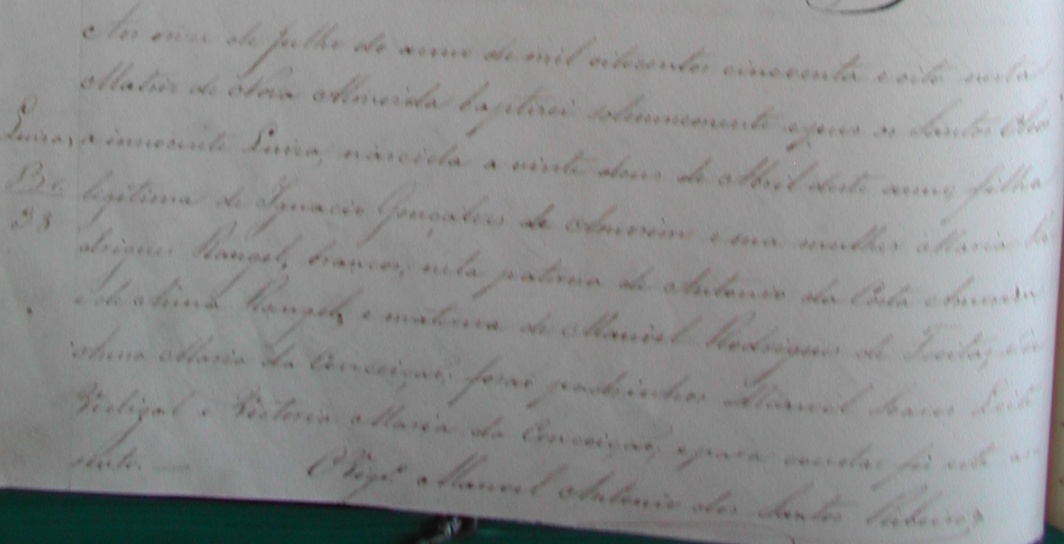 Aos onze de Julho do anno de mil oitocentos cincoenta e oito nesta
Matriz de Nova Almeida baptizei solemnemente e puz os Santos Oleos
Luiza, a innocente Luiza, nascida a vinte dous de Abril deste anno, filha
Br.
legitima de Ignacio Gonçalves de Amorim e sua mulher Maria Ro
38
drigues Rangel, brancos, neta paterna de Antonio da Costa Amorim
e de Anna Rangel, e materna de Manoel Rodrigues de Freitas, e de
Anna Maria da Conceição; forão padrinhos Manoel Soares Leite
Vidigal e Victoria Maria da Conceição, e para constar fiz este as
sento. —
O Vigr.º Manoel Antonio dos Santos Ribeiro